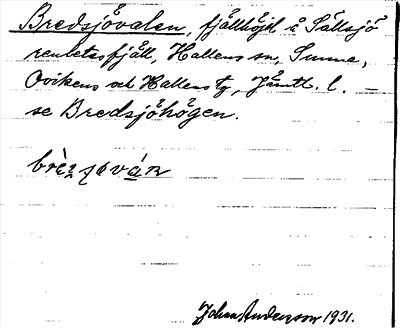 Bredsjövalen, fjällhöjd å Sällsjö
renbetesfjäll, Hallens sn, Sunne,
Ovikens och Hallens tg, Jämtl. l. –
se Bredsjöhögen.
Johan Anderson 1931.